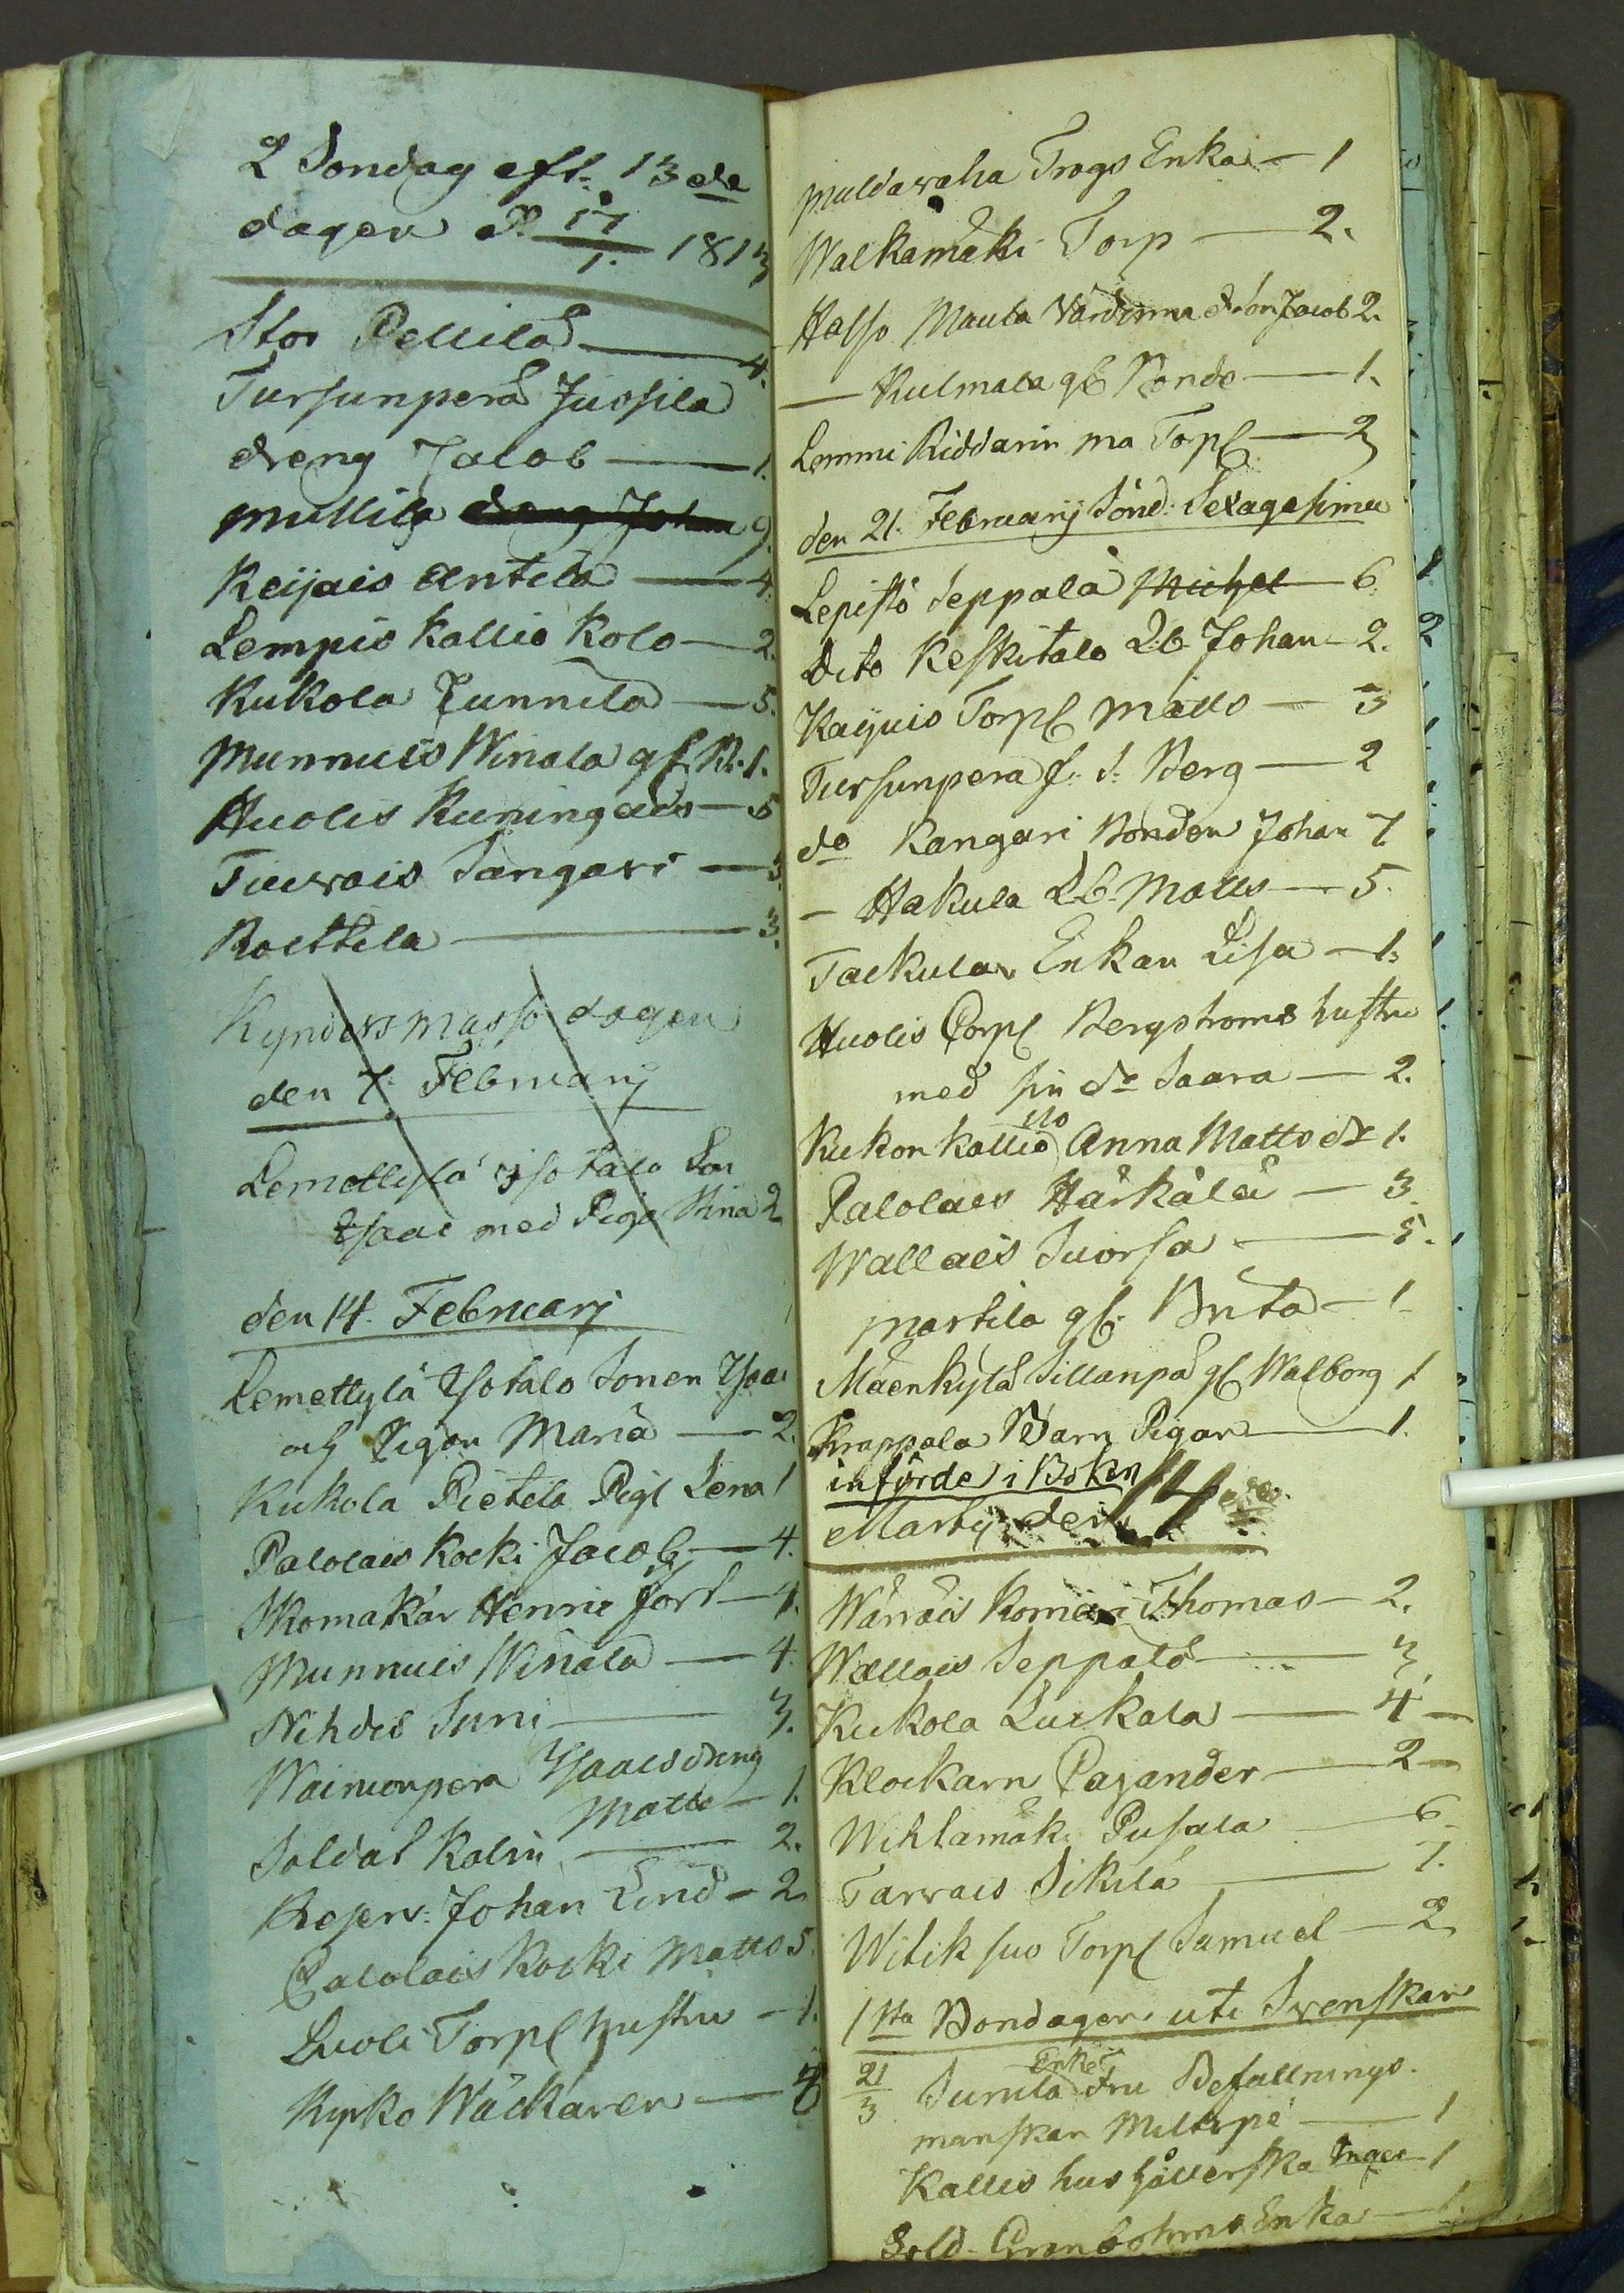 2 Söndag eft. 13de
dagen d. 17/1. 1813
Stor Pellilä — 4.
Tursunperä Jussila
dreng Jacob — 1.
Mullila dreng Johan 9.
Keijais Antila — 4.
Lempis Kallio Kolo — 2.
Kukola Junnila — 5.
Munnuis Winala gl. B. 1.
Huolis Kuningas — 5
Tiurais Sangari — 3.
Roittila — 3.
Kyndersmässo dagen
den 7. Februarij
Lemettylä Isotalo Son
Isaac med Piga Stina 2
den 14. Februarij
Lemettylä Isotalo Sonen Isaac
och Pigan Maria — 2.
Kukola Pietila Pig. Lena 1
Palolais Kocki Jacob — 4.
Skomakar Henric Fort — 4.
Munnuis Winala — 4.
Nihdis Juni — 3.
Wainionperä Isaacs dreng
Matts — 1.
Soldat Kalin — 2.
Reserv. Johan Lind — 2
Palolais Kocki Matts 5.
Luoli Torp. hustru — 1.
Kyrko Wäcktaren — 4
Muldawaha Trogs Enka — 1
Walkamäki Torp — 2.
Halso Maula Värdinna & Son Jacob 2.
— Kulmala gl. Bonde — 1.
Lemmi Riddarin ma Torp. — 2
den 21. Februarij Sönd. Sexagesima
Lepistö Seppälä Michel — 6.
Dito Keskitalo Db. Johan — 2.
Kayuis Torp. Matts — 3
Tursunpera f. d. Berg — 2
do Kangari Bonden Johan 7
— Hakula Db. Matts — 5.
Tackulan Enkan Lisa — 1.
Huolis Corp. Bergströms hustru 1.
med sin dr Saara — 2.
Kukon kallio Anna Matts dr 1.
Palolais Härkälä — 3.
Wallais Suorsa — 5.
Martila gl. Brita — 1
Mäenkylä Sillanpä gl. Walborg 1
Knappala Barn Pigan — 1.
införde i Boken
Martij den 14
Wänäis Komeri Thomas — 2.
Wallais Seppälä — 3.
Kukola Luckala — 4 —
Klockarn Pajander — 2 —
Wihlamäki Pusala — 6
Tarvais Sikilä — 7.
Witik suo Torp. Samuel — 2
1sta Böndagen uti Svenskan
21/3 Junila Enke Fru Befallnings-
manskan Miltopé — 1
Kallis hushållerska Inga — 1
Sold. Granbohms Enka — 1.